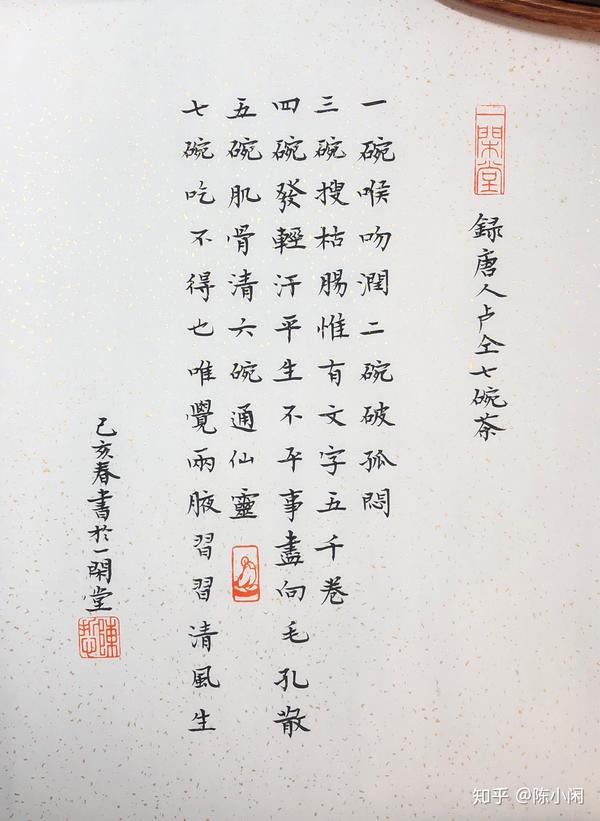 一閑堂
録唐人卢仝七碗茶
一碗喉吻潤二碗破孤悶
三碗搜枯腸惟有文字五千卷
四碗發輕汗平生不平事盡向毛孔散
五碗肌骨清六碗通仙靈
七碗吃不得也唯覺兩腋習習清風生
己亥春書於一閑堂
陳
知乎 @陈小闲